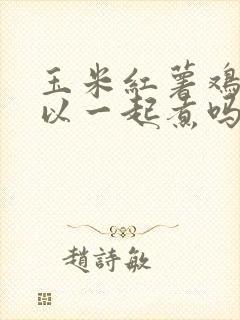 玉米紅薯鸡
以一起煮吗
趙詩敏